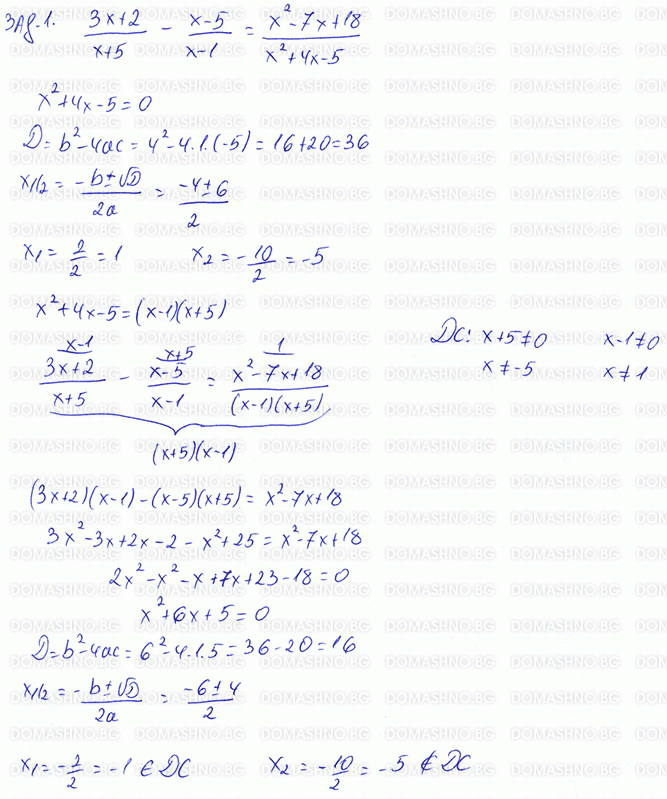 Зад.1. (3x+2)/(x+5) - (x-5)/(x-1) = (x²-7x+18)/(x²+4x-5)
x²+4x-5=0
D=b²-4ac=4²-4.1.(-5)=16+20=36
x1/2=(-b±√D)/2a=(-4±6)/2
x₁=2/2=1 x₂=-10/2=-5
x²+4x-5=(x-1)(x+5)
ДС: x+5≠0 x-1≠0
x≠-5 x≠1
x-1 x+5 1
(3x+2)/(x+5) - (x-5)/(x-1) = (x²-7x+18)/((x-1)(x+5))
(x+5)(x-1)
(3x+2)(x-1)-(x-5)(x+5)=x²-7x+18
3x²-3x+2x-2-x²+25=x²-7x+18
2x²-x²-x+7x+23-18=0
x²+6x+5=0
D=b²-4ac=6²-4.1.5=36-20=16
x1/2=(-b±√D)/2a=(-6±4)/2
x₁=-2/2=-1 ∈ ДС x₂=-10/2=-5 ∉ ДС
DOMASHNO.BG